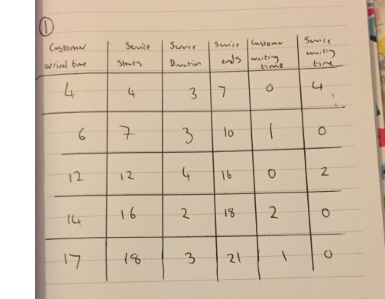 1
Customer arrival time | Service Starts | Service Duration | Service ends | Customer waiting time | Service waiting time
4 | 4 | 3 | 7 | 0 | 4
6 | 7 | 3 | 10 | 1 | 0
12 | 12 | 4 | 16 | 0 | 2
14 | 16 | 2 | 18 | 2 | 0
17 | 18 | 3 | 21 | 1 | 0